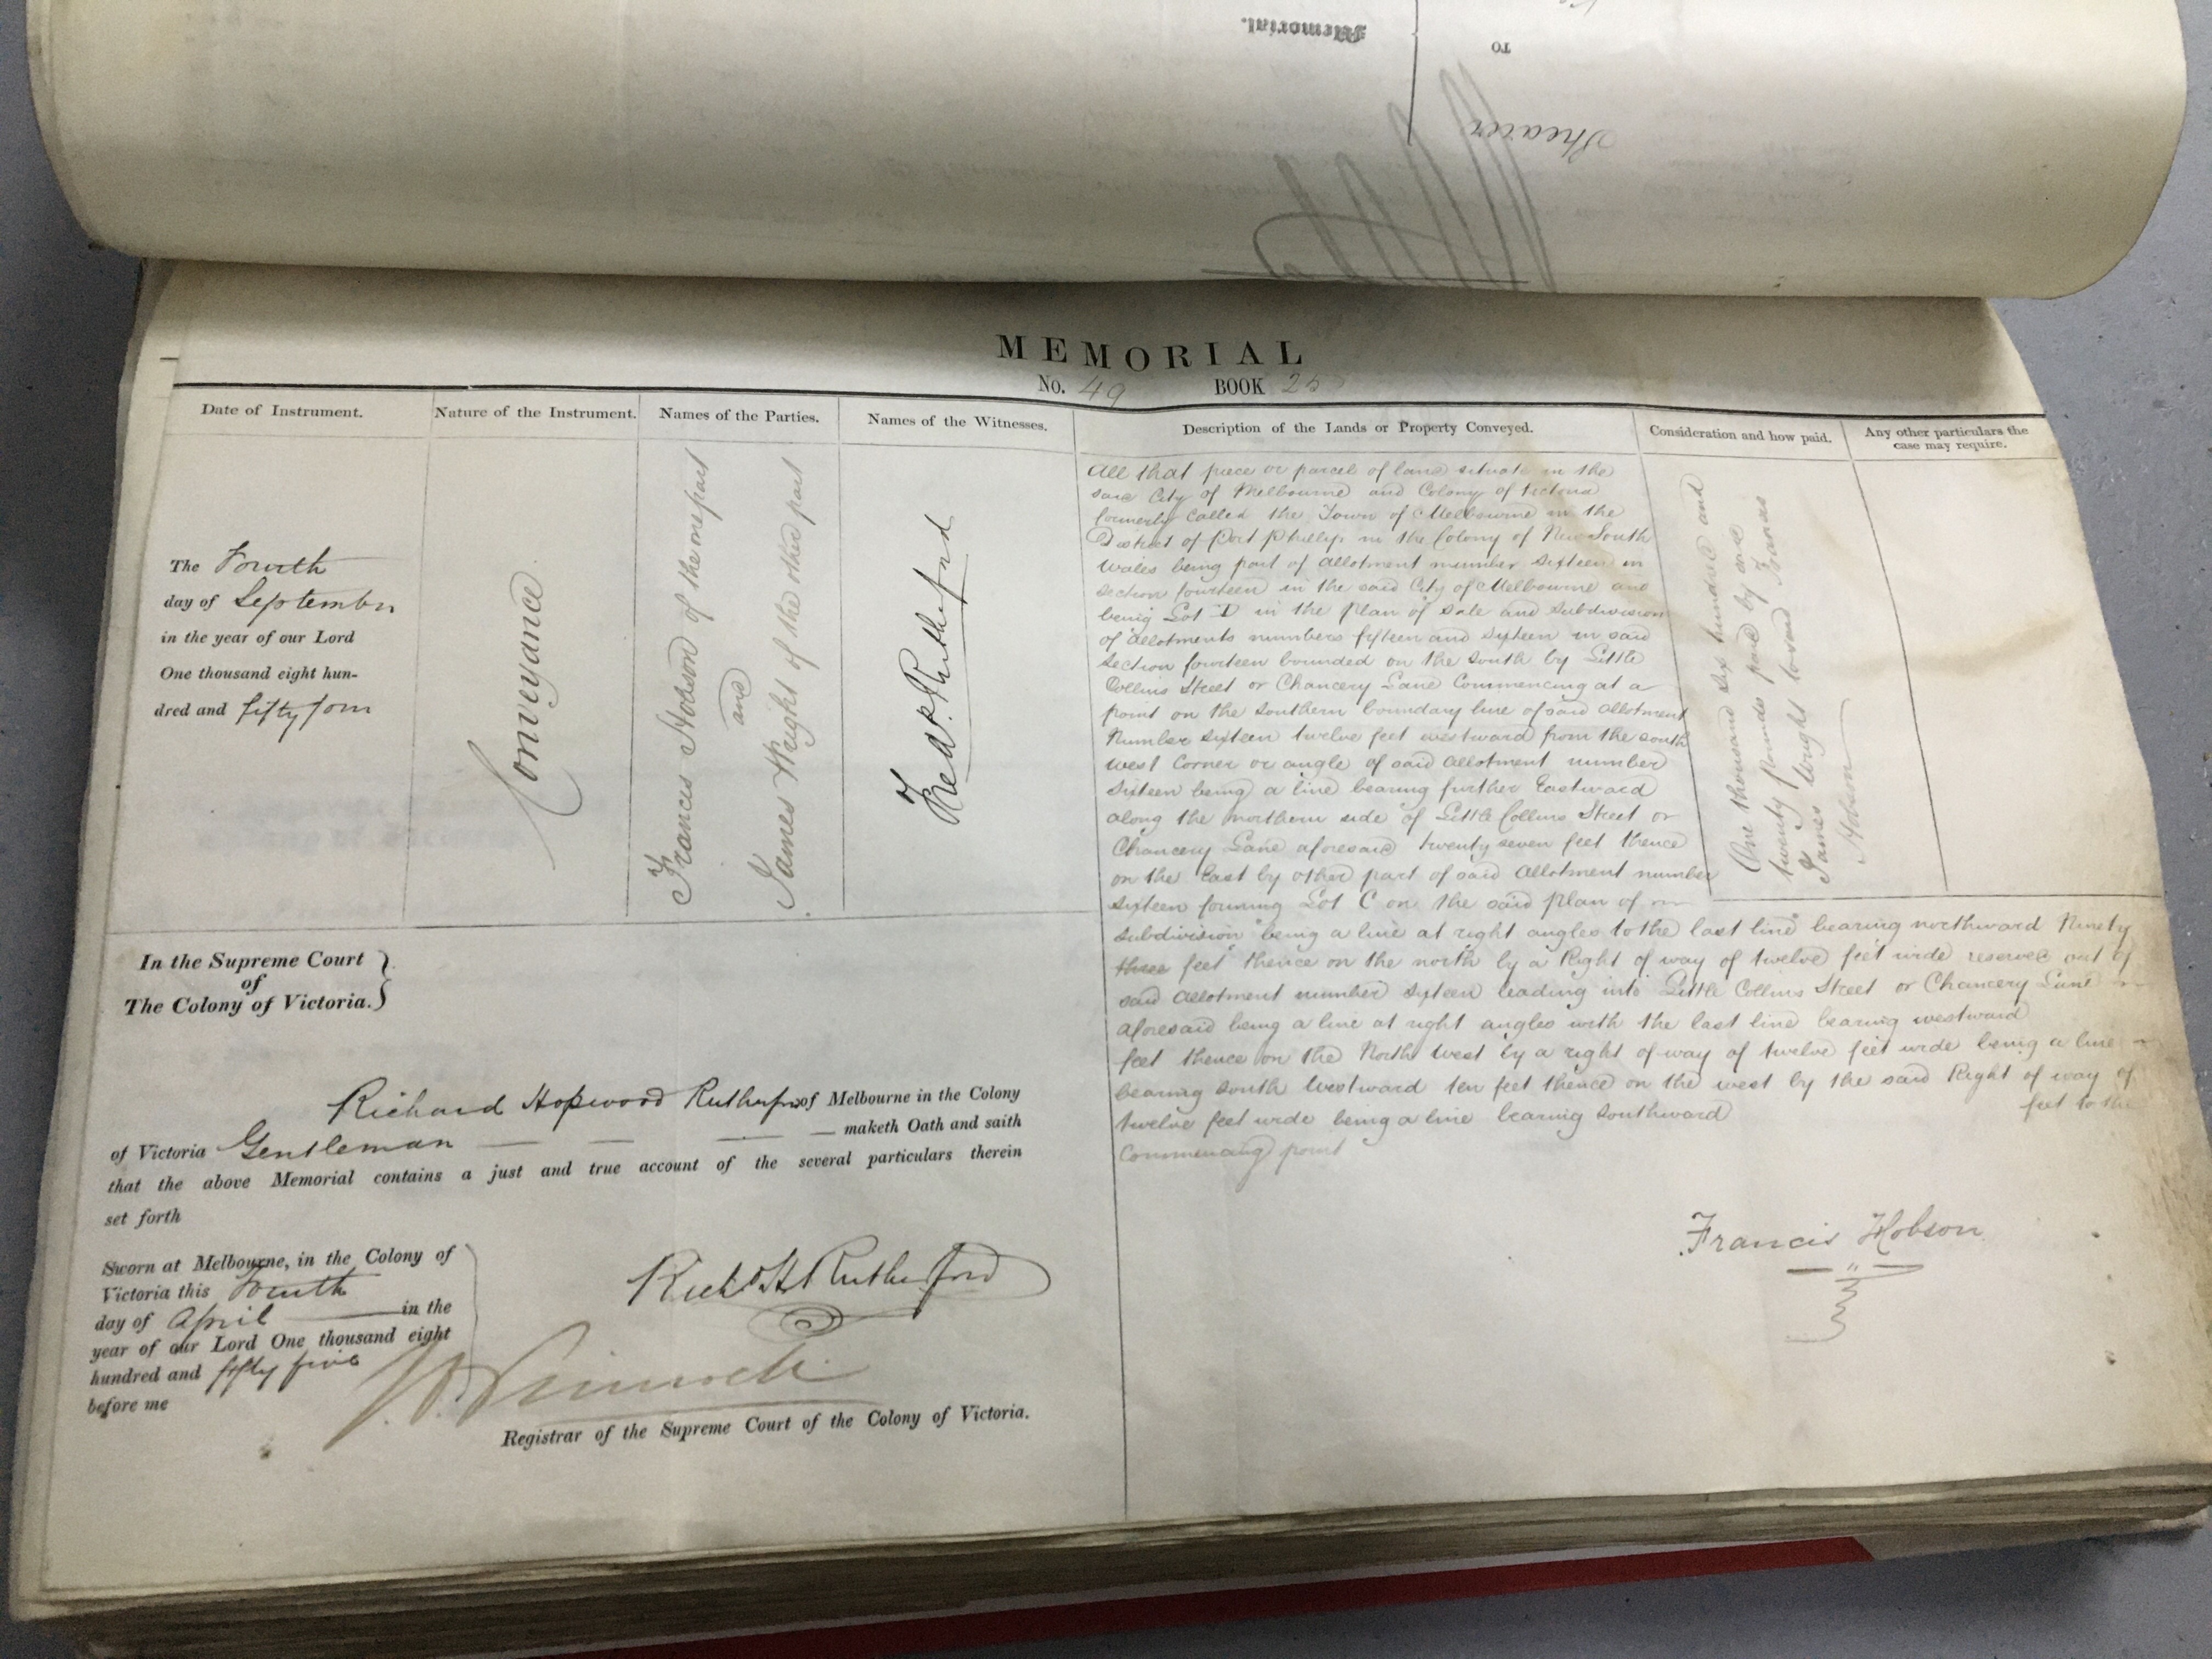 TO
Memorial.
MEMORIAL
No. 49 BOOK 25
Date of Instrument.
Nature of the Instrument.
Names of the Parties.
Names of the Witnesses.
Description of the Lands or Property Conveyed.
Consideration and how paid.
Any other particulars the
case may require.
The Fourth
day of September
in the year of our Lord
One thousand eight hun-
dred and fifty four
Conveyance
Francis Hobson of the one part
and
James Wright of the other part
Fred R. Rutherford
All that piece or parcel of land situate in the
said City of Melbourne and Colony of Victoria
formerly called the Town of Melbourne in the
District of Port Phillip in the Colony of New South
Wales being part of allotment number Sixteen in
section fourteen in the said City of Melbourne and
being Lot D in the plan of sale and subdivision
of allotments numbers fifteen and sixteen in said
section fourteen bounded on the South by Little
Collins Street or Chancery Lane Commencing at a
point on the southern boundary line of said allotment
Number sixteen twelve feet westward from the south
west corner or angle of said allotment number
sixteen being a line bearing further Eastward
along the northern side of Little Collins Street or
Chancery Lane aforesaid twenty seven feet thence
on the East by other part of said allotment number
sixteen forming Lot C on the said plan of
subdivision being a line at right angles to the last line bearing northward Ninety
three feet thence on the north by a Right of way of twelve feet wide reserved out of
said allotment number sixteen leading into Little Collins Street or Chancery Lane
aforesaid being a line at right angles with the last line bearing westward
feet thence on the North West by a right of way of twelve feet wide being a line
bearing South Westward ten feet thence on the west by the said Right of way of
twelve feet wide being a line bearing Southward feet to the
Commencing point
One thousand six hundred and
twenty pounds paid by said
James Wright to said Francis
Hobson
Francis Hobson
In the Supreme Court
of
The Colony of Victoria.
Richard Hopwood Rutherford of Melbourne in the Colony
of Victoria Gentleman maketh Oath and saith
that the above Memorial contains a just and true account of the several particulars therein
set forth
Sworn at Melbourne, in the Colony of
Victoria this Fourth
day of April in the
year of our Lord One thousand eight
hundred and fifty five
before me
Richd H Rutherford
Registrar of the Supreme Court of the Colony of Victoria.